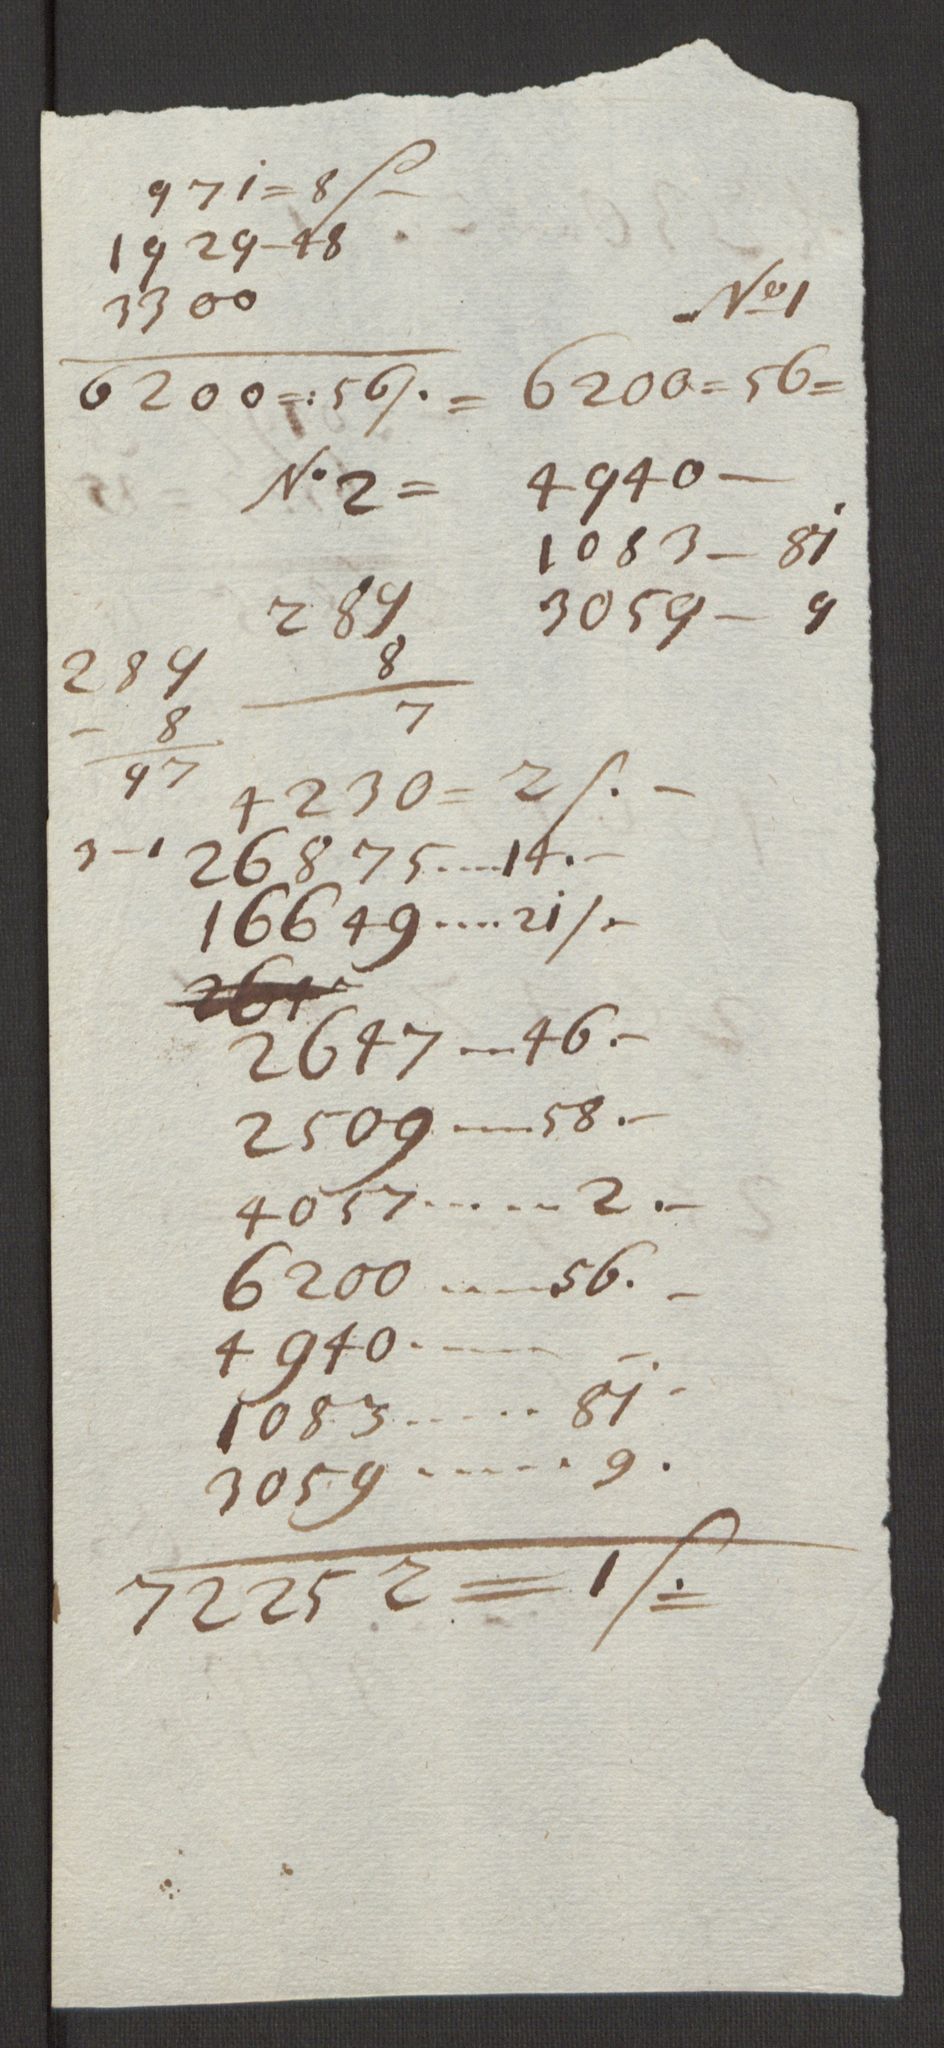 971=8 ß
1929-48
3300
No 1
6200=:56/. = 6200=56=
No 2= 4940 —
1083 — 81
289 3059 — 9
8
7
289
- 8
97
4230=2 ß. —
3-1 26875....14. —
16649....21/. —
2647....46. —
2509....58. —
4057......2. —
6200.....56. —
4940...... —
1083...... 81 -
3059...... 9.
72252 = 1 ß. =